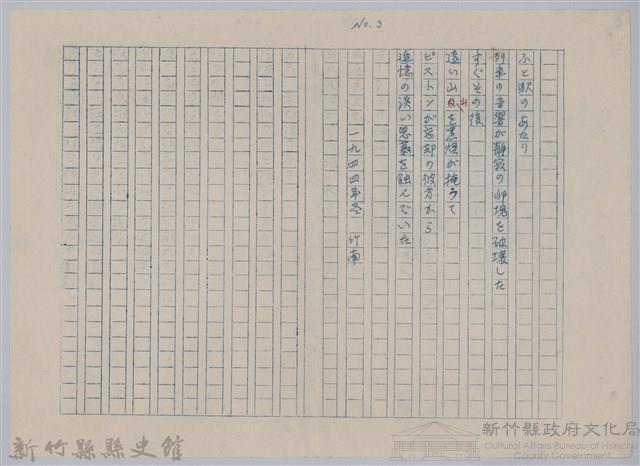 No. 3
ふと駅のあたり
列車の音響が静寂の卵塊を破壊した
すぐその後
遠い山山を煤煙が掩うて
ピストンが忘却の彼方から
追憶の淡い思慕を蝕んでいた
一九四四年冬 竹南
新竹縣縣史館
新竹縣政府文化局
Cultural Affairs Bureau of Hsinchu
County Government